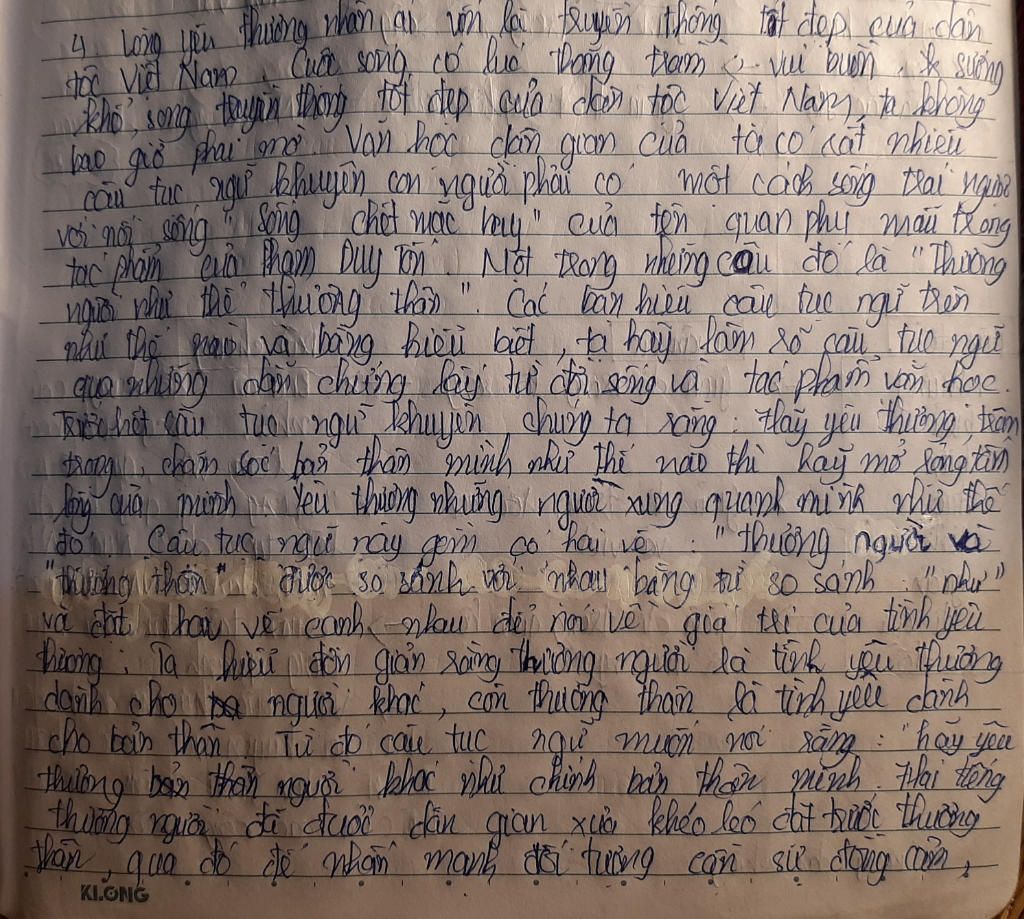 4 Lòng yêu thương nhân ái vốn là truyền thống tốt đẹp của dân
tộc Việt Nam. Cuộc sống có lúc thăng trầm vui buồn, sướng
khổ, song truyền thống tốt đẹp của dân tộc Việt Nam, ta không
bao giờ phai mờ Văn học dân gian của ta có rất nhiều
câu tục ngữ khuyên con người phải có một cách sống trái ngược
với nói sống "sống chết mặc bay" của tên quan phụ mẫu trong
tác phẩm của Phạm Duy Tốn. Một trong những câu đó là "Thương
người như thể thương thân". Các bạn hiểu câu tục ngữ trên
như thế nào và bằng hiểu biết, ta hãy làm rõ câu tục ngữ
qua những dẫn chứng lấy từ đời sống và tác phẩm văn học.
Trước hết câu tục ngữ khuyên chúng ta rằng: Hãy yêu thương, trân
trọng, chăm sóc bản thân mình như thế nào thì hãy mở rộng tấm
lòng của mình yêu thương những người xung quanh mình như thế
đó. Câu tục ngữ này gồm có hai vế: "thương người và
"thương thân" được so sánh với nhau bằng từ so sánh "như"
và đặt hai vế cạnh nhau để nói về giá trị của tình yêu
thương. Ta hiểu đơn giản rằng thương người là tình yêu thương
dành cho người khác, còn thương thân là tình yêu dành
cho bản thân. Từ đó câu tục ngữ muốn nói rằng: "hãy yêu
thương bản thân người khác như chính bản thân mình. Hai tiếng
thương người đã được dân gian xưa khéo léo đặt trước thương
thân, qua đó để nhấn mạnh đối tượng cần sự đồng cảm,
KLONG